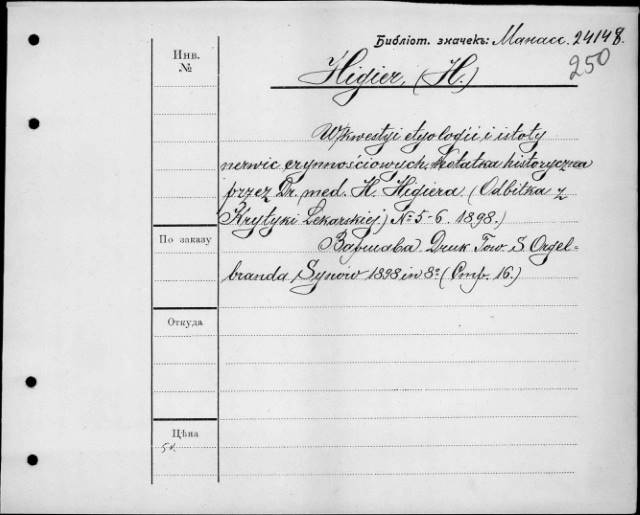 Библіот. значекъ: Манасс. 24148.
250
Инв.
№
Higier, (H.)
W kwestyi etyologii i istoty
nerwic czynnościowych. Notatka historyczna
przez Dr. med. H. Higiera (Odbitka z
Krytyki Lekarskiej) № 5-6. 1898.)
По заказу
Варшава. Druk Tow. S. Orgel-
branda Synów 1898 in 8º (Стр. 16.)
Откуда
Цѣна